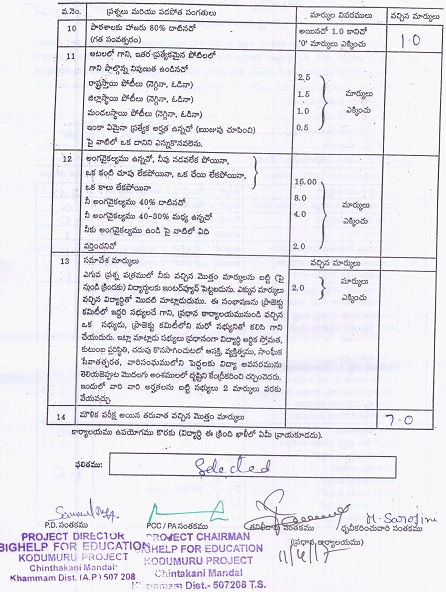 వ.నెం. ప్రశ్నలు మరియు పదవోత సంగతులు మార్కుల వివరములు వచ్చిన మార్కులు
10 పాఠశాలకు హాజరు 80% దాటినచో అయినచో 1.0 కానిచో 1.0
(గత సంవత్సరం) '0' మార్కులు ఎక్కించు
11 ఆటలలో గాని, ఇతర ప్రత్యేకమైన పోటిలలో
గాని పాల్గొన్న నిపుణత ఉండినచో
రాష్ట్రస్థాయి పోటీలు (నెగ్గినా, ఓడినా) 2.5
జిల్లాస్థాయి పోటీలు (నెగ్గినా, ఓడినా) 1.5 మార్కులు
మండలస్థాయి పోటీలు (నెగ్గినా, ఓడినా) 1.0 ఎక్కించు
ఇంకా ఏమైనా ప్రత్యేక అర్హత ఉన్నచో (ఋజువు చూపించి) 0.5
పై వాటిలో ఒక దానిని ఎన్నుకొనవలెను.
12 అంగవైకల్యము ఉన్నచో, నీవు నడవలేక పోయినా,
ఒక కంటి చూపు లేకపోయినా, ఒక చేయి లేకపోయినా,
ఒక కాలు లేకపోయినా 16.00
నీ అంగవైకల్యము 40% దాటినచో 8.0 మార్కులు
నీ అంగవైకల్యము 40-30% మధ్య ఉన్నచో 4.0 ఎక్కించు
నీకు అంగవైకల్యము ఉండి పై వాటిలో ఏది
వర్తించనిచో 2.0
13 సమావేశ మార్కులు వచ్చిన మార్కులు
ఎగువ ప్రశ్న పత్రములో నీకు వచ్చిన మొత్తం మార్కులను బట్టి (పై
నుండి క్రిందకు) విద్యార్థులకు ఇంటర్వ్యూకి పెట్టబడును. ఎక్కువ మార్కులు 2.0 మార్కులు
వచ్చిన విద్యార్థితో మొదటి మాట్లాడుదుము. ఈ సంభాషణను ప్రాజెక్టు ఎక్కించు
కమిటీలో ఇద్దరి సభ్యులచే గాని, ప్రధాన కార్యాలయమునుండి వచ్చిన
ఒక సభ్యుడు, ప్రాజెక్టు కమిటీలోని మరో సభ్యునితో కలిసి గాని
చేయుదురు. ఇట్లా మాట్లాడు సభ్యులు ప్రధానంగా విద్యార్థి ఆర్థిక స్తోమత,
కుటుంబ పరిస్థితి, చదువు కొనసాగించుటలో ఆసక్తి, వ్యక్తిత్వము, సాంఘిక
సేవాతత్పరత, వారిసంఘములోని పెద్దలకు విద్యా అవసరమును
తెలియజెప్పుట మొదలగు అంశములలో దృష్టిని కేంద్రీకరించి చర్చించెదరు.
ఇందులో వారి వారి అర్హతలను బట్టి సభ్యులు 2 మార్కులు వరకు
వేయవచ్చు
14 మౌళిక పరీక్ష అయిన తరువాత వచ్చిన మొత్తం మార్కులు 7.0
కార్యాలయము ఉపయోగము కొరకు (విద్యార్థి ఈ క్రింది ఖాళీలో ఏమీ వ్రాయకూడదు).
ఫలితము: Selected
M. Sarojini
P.D. సంతకము PCC / PA సంతకము తనిఖీదారు సంతకము ధృవీకరించువారి సంతకము
(ప్రధాన కార్యాలయం)
11/6/17
PROJECT DIRECTOR
BIGHELP FOR EDUCATION
KODUMURU PROJECT
Chinthakani Mandal
Khammam Dist. (A.P) 507 208
PROJECT CHAIRMAN
BIGHELP FOR EDUCATION
KODUMURU PROJECT
Chintakani Mandal
Khammam Dist.- 507208 T.S.